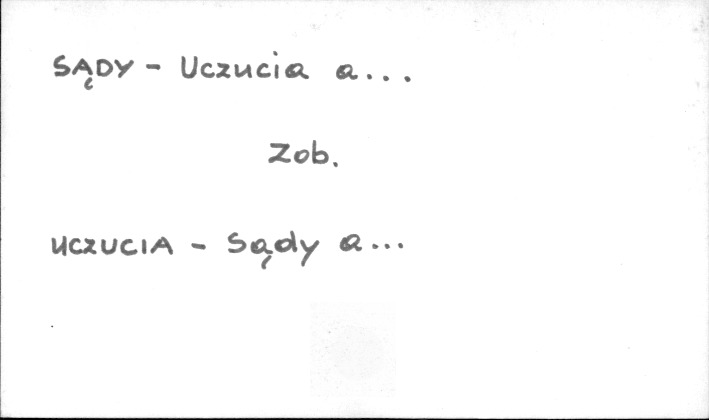 SĄDY - Uczucia a...
Zob.
UCZUCIA - Sądy a...